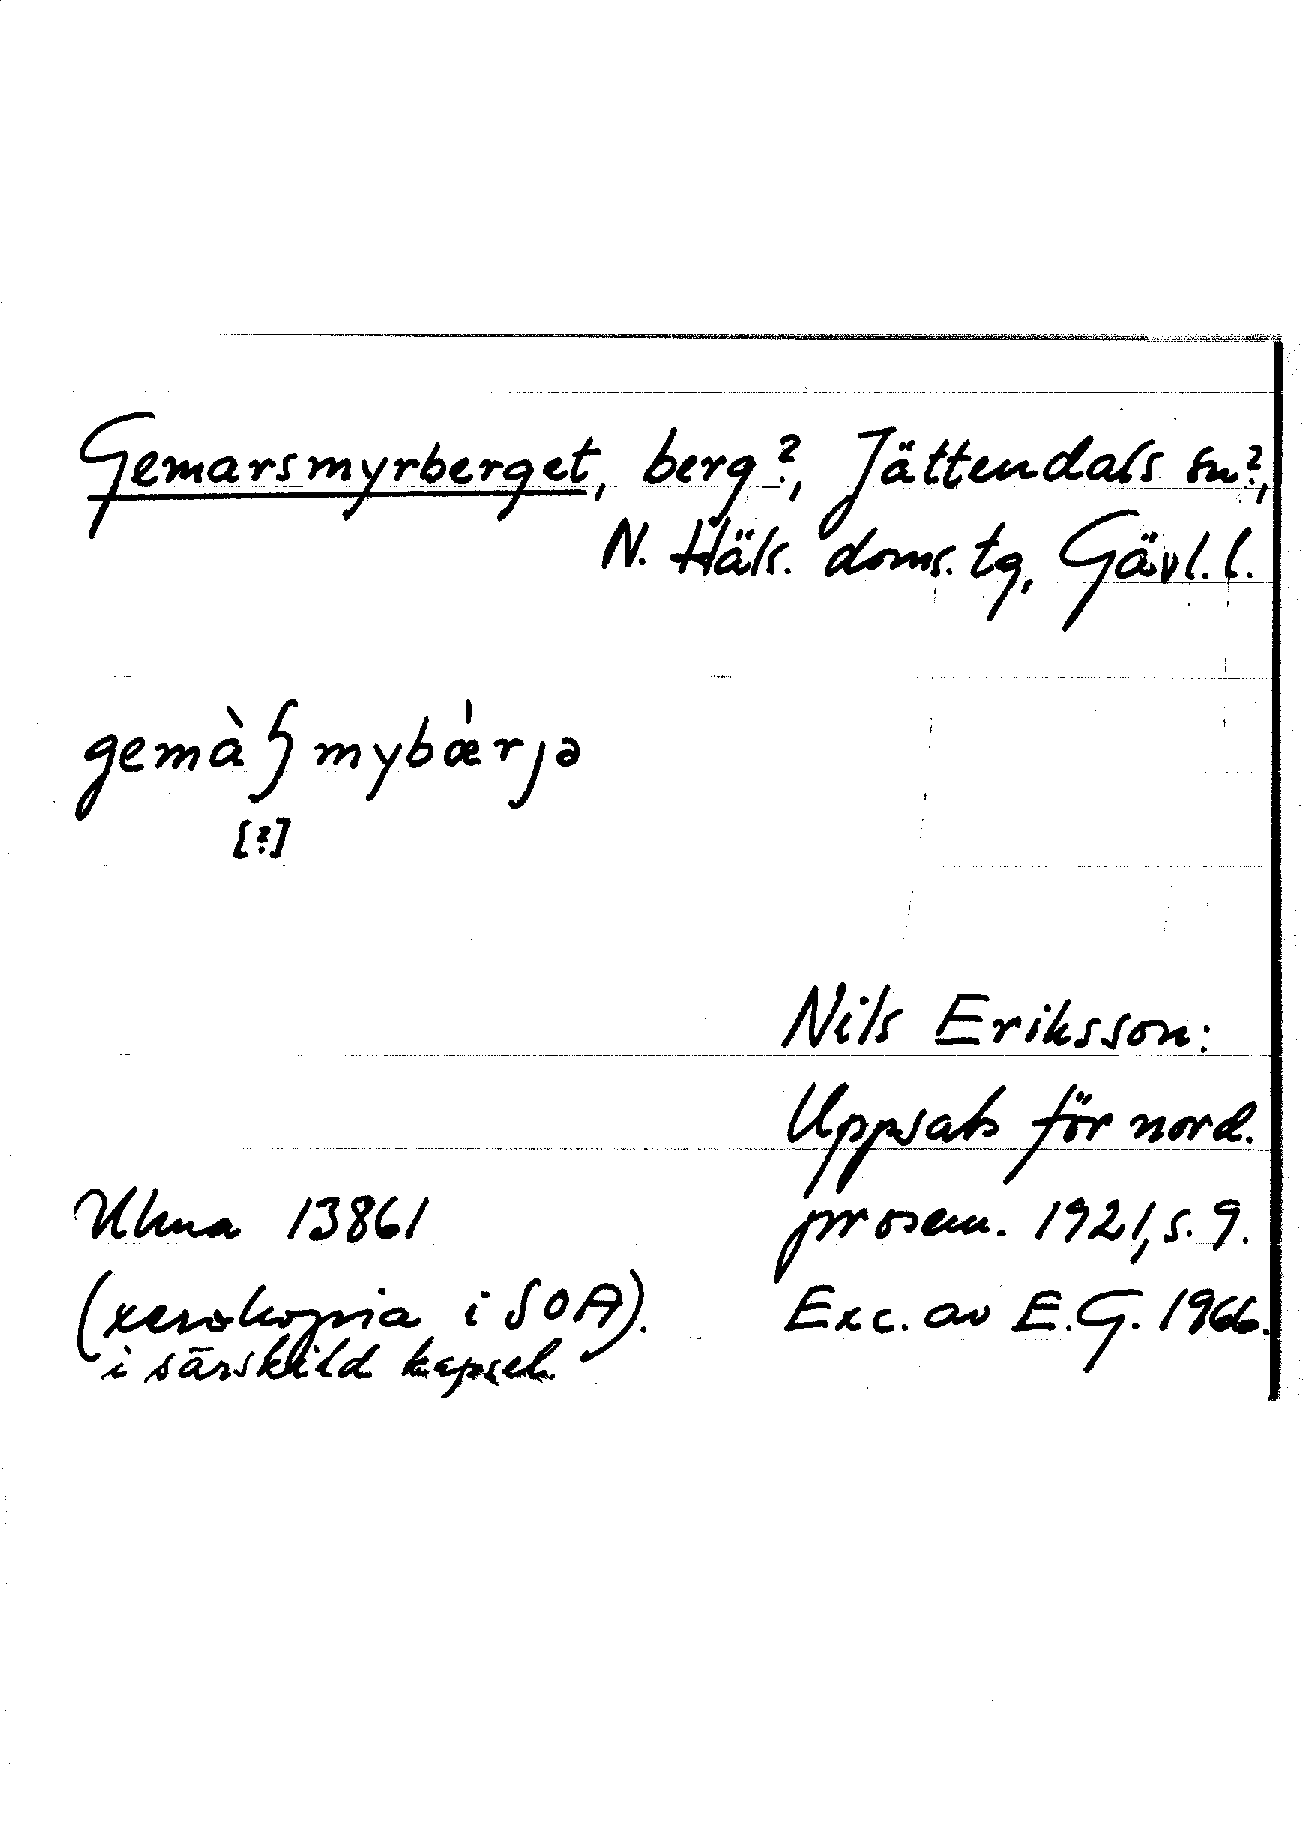 Gemarsmyrberget, berg?, Jättendals sn?,
N. Häls. doms. tg, Gävl. l.
gemàʃmybœ̀rjə
[?]
Nils Eriksson:
Uppsats för nord.
prosem. 1921, s. 9.
Exc. av E.G. 1966.
Ulma 13861
(xerokopia i SOA).
i särskild kapsel.